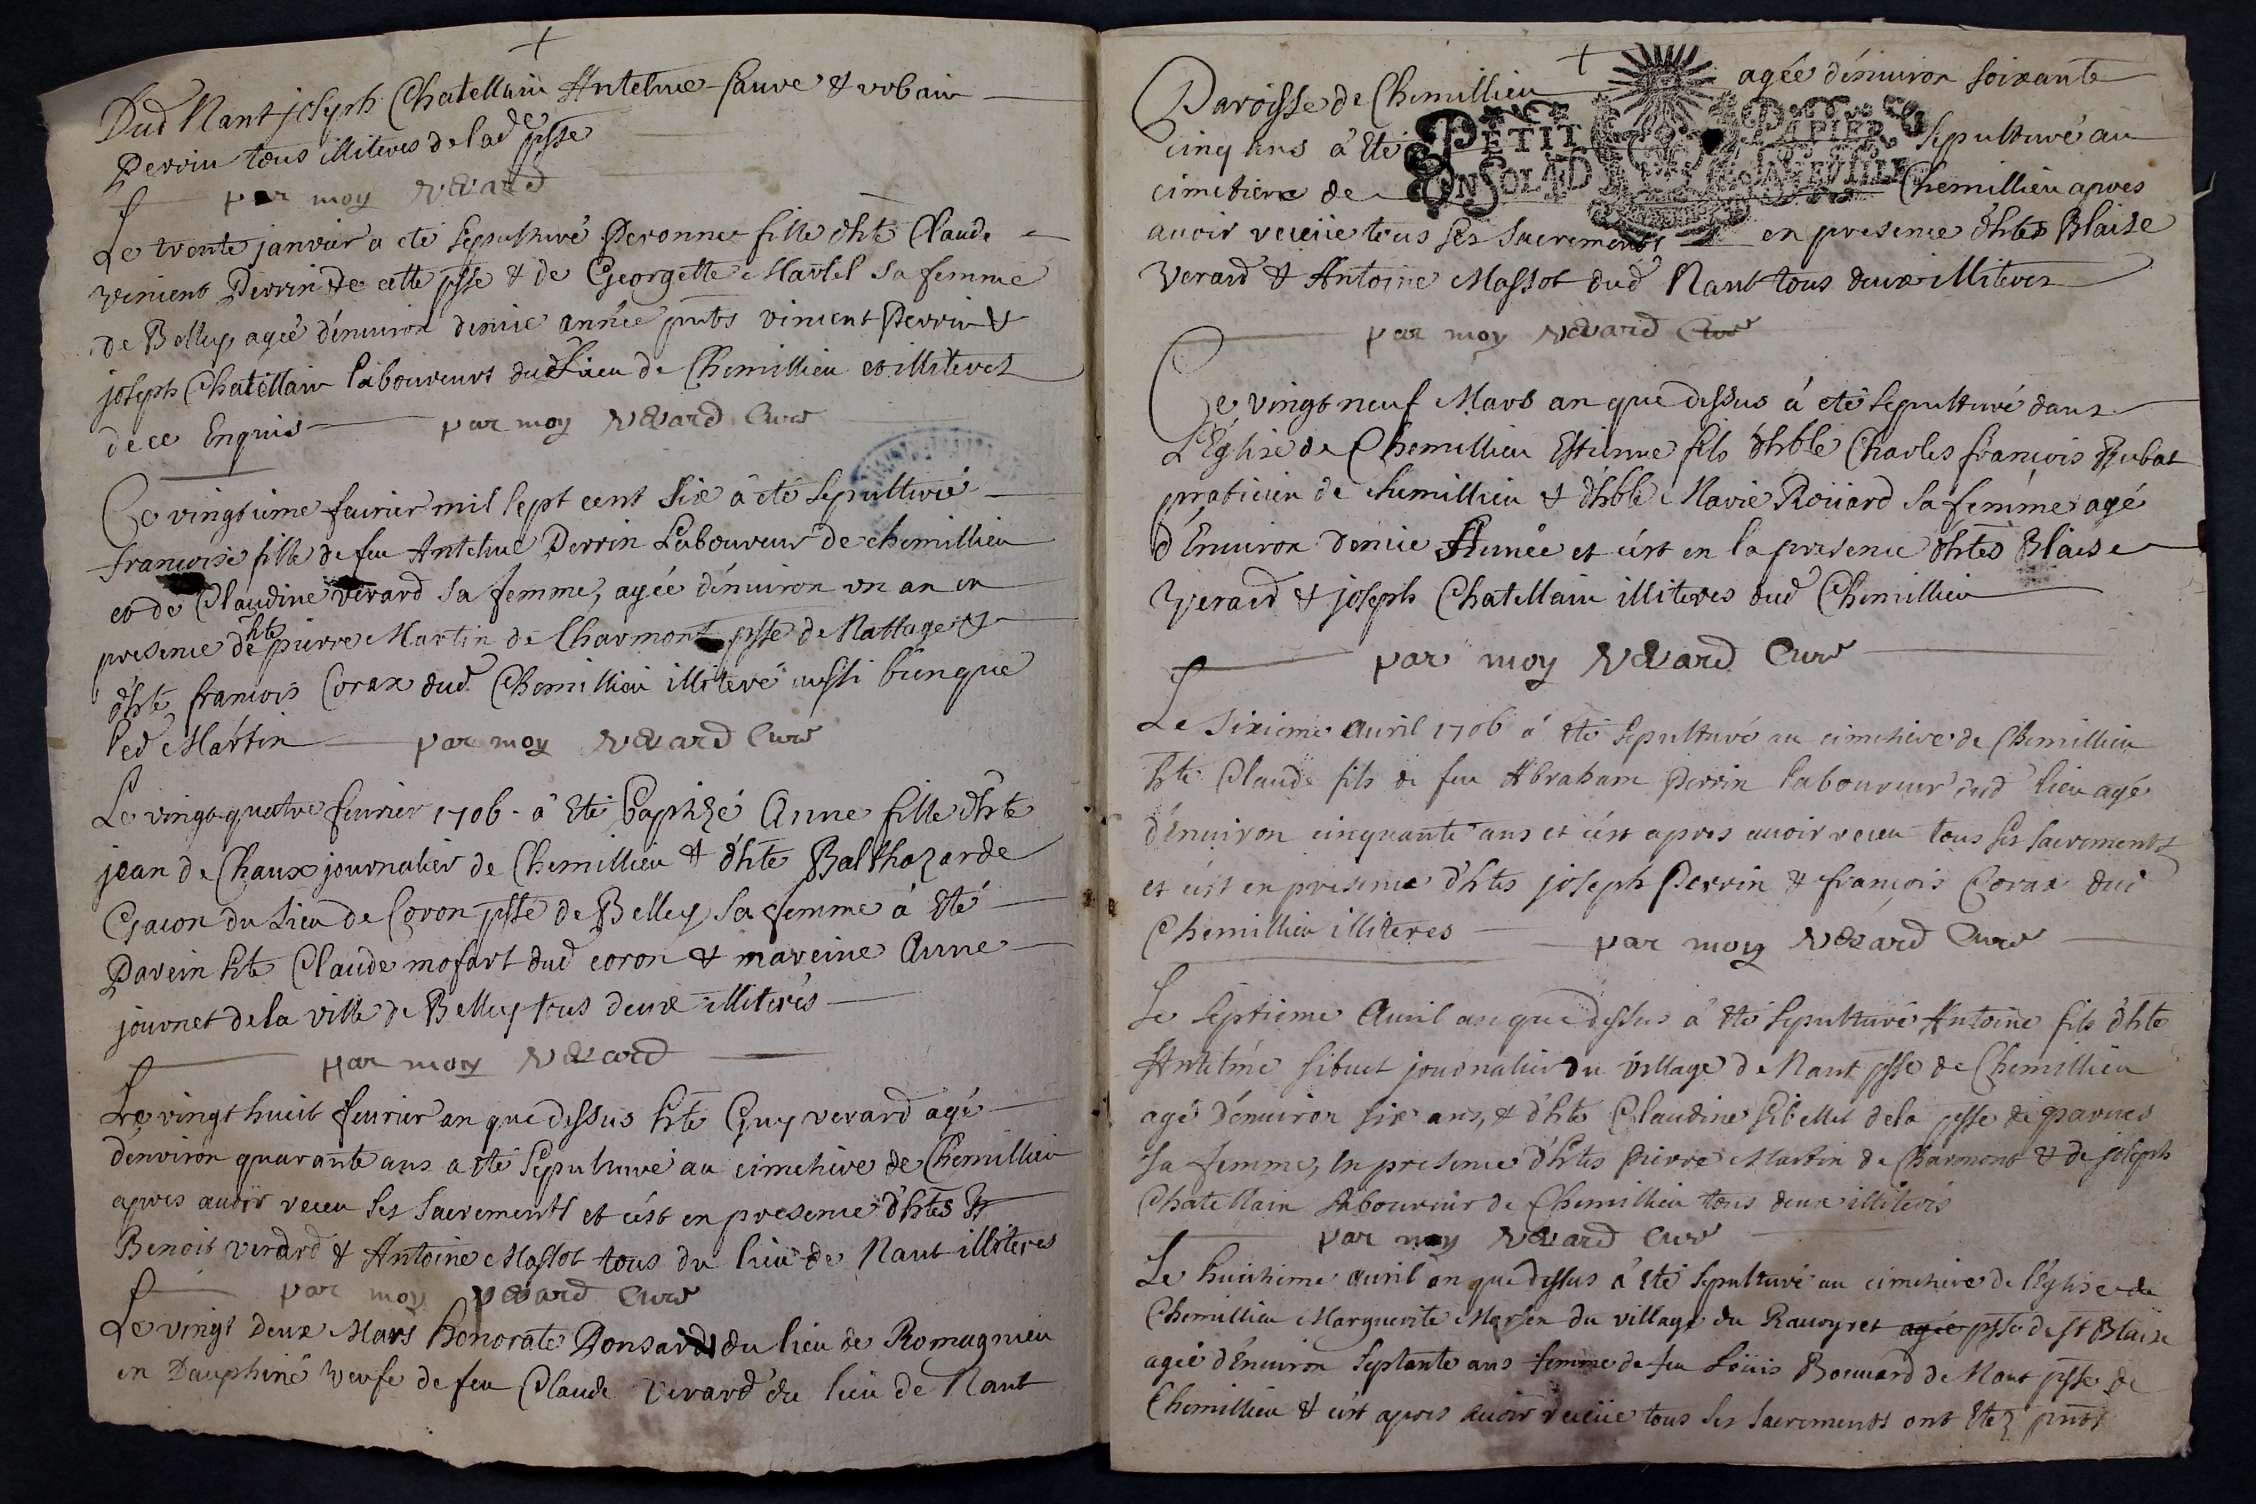 Dud Nant joseph Chatellain Antelme faure & vrbain
Perrin tous illiteres de lad psse
par moy Revard
Le trente janvier a eté sepulturé Peronne fille d'hte Claude
vincent Perrin de cette psse & de Georgette Martel sa femme
de Belley, agée d'enuiron demie année pnts vincent Perrin &
joseph Chatellain laboureurs dud Lieu de Chemillieu et illiteres
de ce Enquis par moy Revard Curé
Ce vingtieme feurier mil sept cent six à eté sepulturé
francoise fille de feu Antelme Perrin Laboureur de chemillieu
et de Claudine verard sa femme, agée d'enuiron vn an en
presence d'hte pierre Martin de Charmont psse de Nattage &
d'hte francois Corax dud Chemillieu illiteré aussi bienque
led Martin par moy Revard Curé
Le vingt quatre feurier 1706 à Eté baptizé Anne fille d'hte
jean de Chaux journalier de Chemillieu & d'hte Balthazarde
Gacon du Lieu de Coron psse de Belley sa femme à Eté
Parein hte Claude mofart dud coron & mareine Anne
journet de la ville de Belley tous deux illiterés
par moy Revard
Le vingt hueit feurier an que dessus hte Guy verard agé
d'environ quarante ans a eté sepulturé au cimetiere de Chemillieu
apres auoir receu ses sacrements et c'est en presence d'htes
Benoit verard & Antoine Massot tous du lieu de Nant illiteres
par moy Revard Curé
Le vingt deux Mars honorate Donsard du lieu de Romagnieu
en Dauphiné veufe de feu Claude Verard du lieu de Nant
Paroisse de Chemillieu agée d'enuiron soixante
PETIT PAPIER
cinq ans à Eté sepulturé au
cimetiere de Chemillieu apres
auoir receüe tous ses sacrements en presence d'htes Blaise
Verard & Antoine Massot dud Nant tous deux illiteres
par moy Revard Curé
Ce vingt neuf Mars an que dessus à eté sepulturé dans
L'Église de Chemillieu Estienne fils d'hble Charles francois Rubat
praticien de chemillieu & d'hble Marie Roüard sa femme agé
d'Enuiron demie Année et c'est en la presence d'htes Blaise
Verard & joseph Chatellain illiteres dud Chemillieu
par moy Revard Curé
Le sixieme Auril 1706 à Eté sepulturé au cimetiere de Chemillieu
hte Claude fils de feu Abraham Perrin laboureur dud lieu agé
d'Enuiron cinquante ans et c'est apres auoir receu tous ses sacrements
et c'est en presence d'htes joseph Perrin & francois Corax dud
Chemillieu illiteres par moy Revard Curé
Le septieme Auril an que dessus à Eté sepulturé Antoine fils d'hte
Antelme sibuet journalier du village de Nant psse de Chemillieu
agé d'enuiron six ans, & d'hte Claudine sibellet de la psse de parues
sa femme, en presence d'htes Pierre Martin de Charmont & de joseph
Chatellain Laboureur de Chemillieu tous deux illiterés
par moy Revard Curé
Le huictieme auril an que dessus à Eté sepulturé au cimetiere de l'Eglise de
Chemillieu Marguerite du village du Rauoyret agée psse de st Blaise
agée d'Enuiron septante ans femme de feu Loüis Bouuard de Nant psse de
Chemillieu & c'est apres auoir receüe tous ses sacrements ont Etez pnts